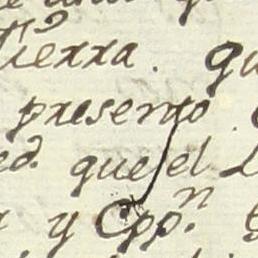 Tierra. qu
presento
ed. que el L
y Cppⁿ